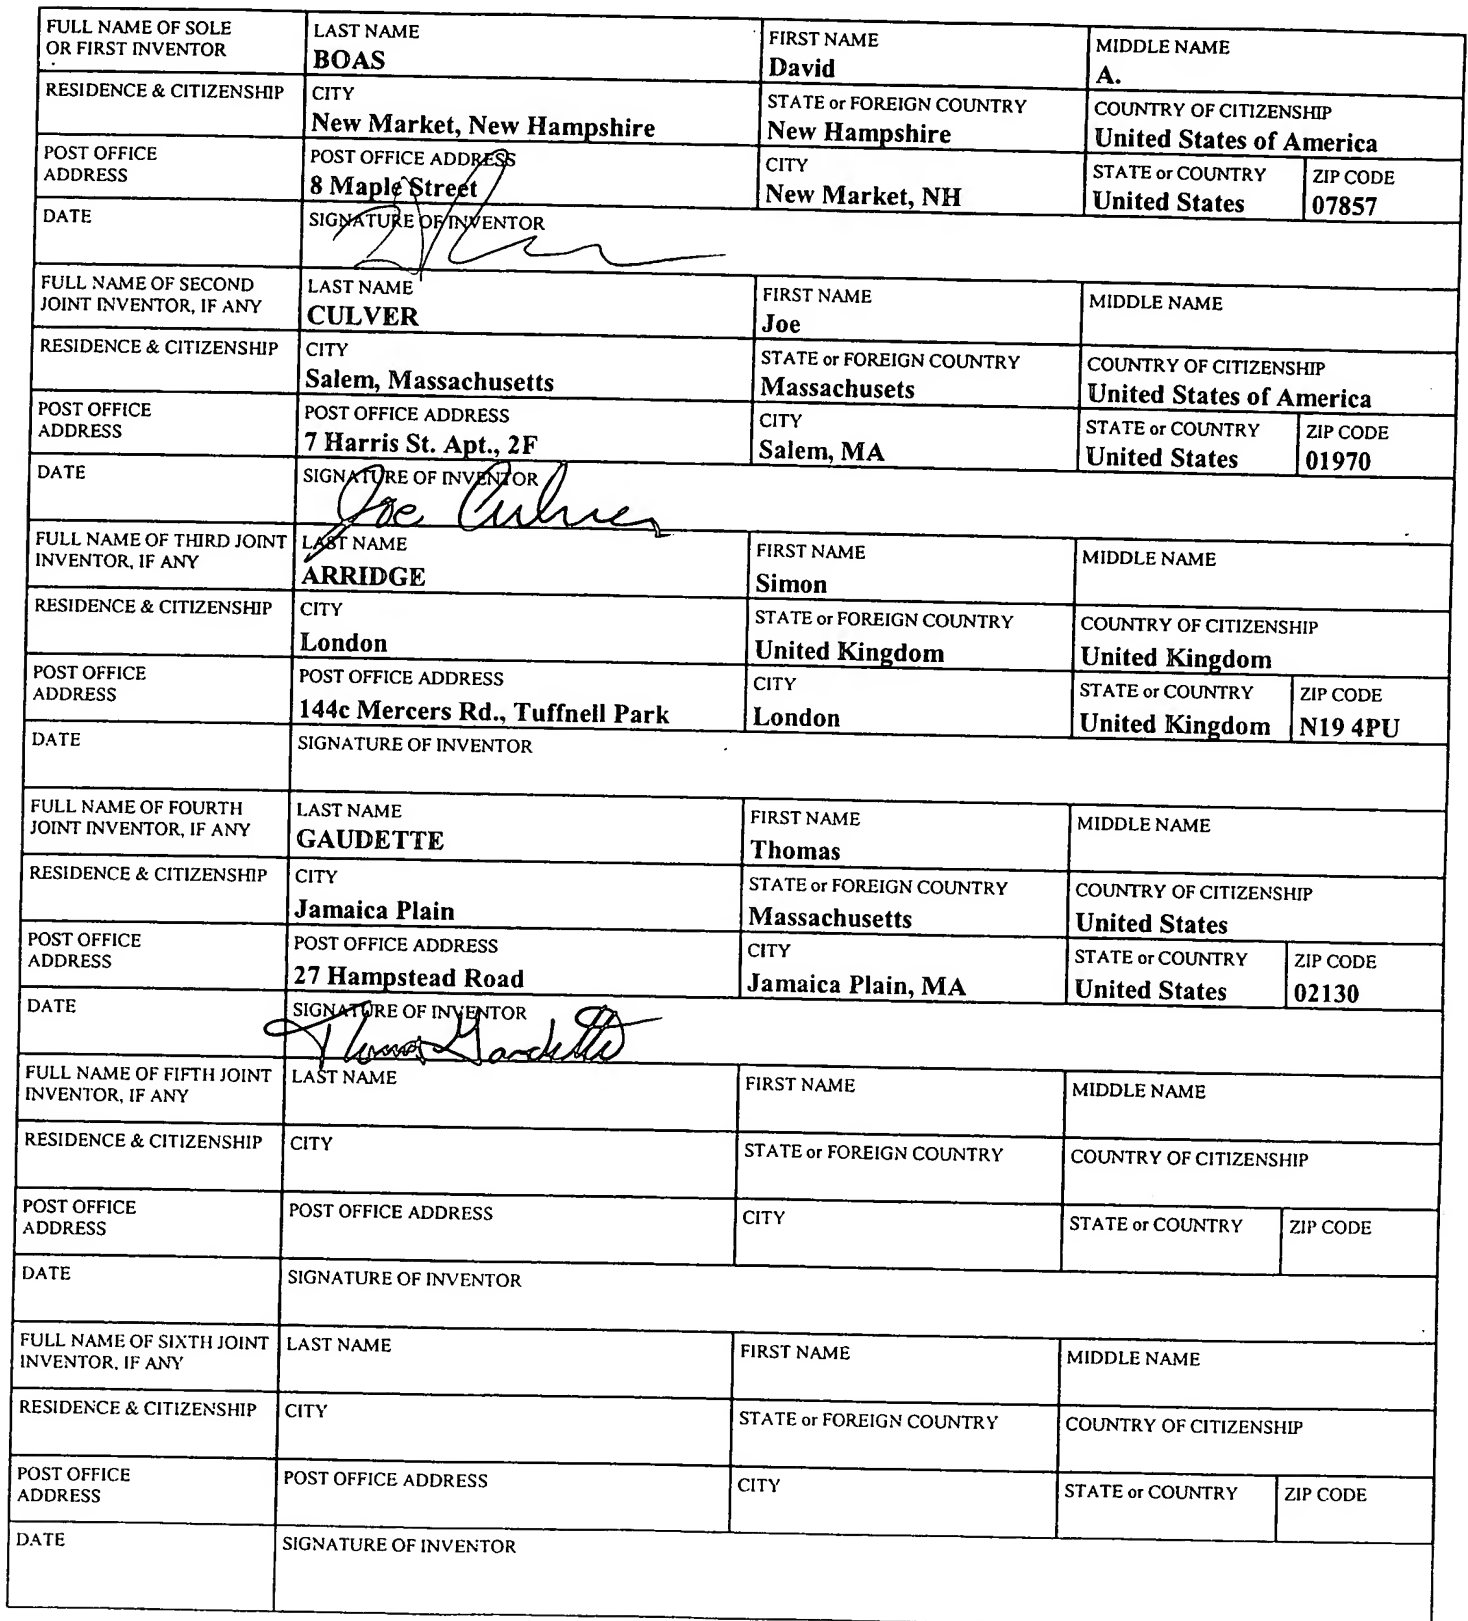 FULL NAME OF SOLE
OR FIRST INVENTOR
LAST NAME
BOAS
FIRST NAME
David
MIDDLE NAME
A.
RESIDENCE & CITIZENSHIP
CITY
New Market, New Hampshire
STATE or FOREIGN COUNTRY
New Hampshire
COUNTRY OF CITIZENSHIP
United States of America
POST OFFICE
ADDRESS
POST OFFICE ADDRESS
8 Maple Street
CITY
New Market, NH
STATE or COUNTRY
United States
ZIP CODE
07857
DATE
SIGNATURE OF INVENTOR
FULL NAME OF SECOND
JOINT INVENTOR, IF ANY
LAST NAME
CULVER
FIRST NAME
Joe
MIDDLE NAME
RESIDENCE & CITIZENSHIP
CITY
Salem, Massachusetts
STATE or FOREIGN COUNTRY
Massachusets
COUNTRY OF CITIZENSHIP
United States of America
POST OFFICE
ADDRESS
POST OFFICE ADDRESS
7 Harris St. Apt., 2F
CITY
Salem, MA
STATE or COUNTRY
United States
ZIP CODE
01970
DATE
SIGNATURE OF INVENTOR
Joe Culver
FULL NAME OF THIRD JOINT
INVENTOR, IF ANY
LAST NAME
ARRIDGE
FIRST NAME
Simon
MIDDLE NAME
RESIDENCE & CITIZENSHIP
CITY
London
STATE or FOREIGN COUNTRY
United Kingdom
COUNTRY OF CITIZENSHIP
United Kingdom
POST OFFICE
ADDRESS
POST OFFICE ADDRESS
144c Mercers Rd., Tuffnell Park
CITY
London
STATE or COUNTRY
United Kingdom
ZIP CODE
N19 4PU
DATE
SIGNATURE OF INVENTOR
FULL NAME OF FOURTH
JOINT INVENTOR, IF ANY
LAST NAME
GAUDETTE
FIRST NAME
Thomas
MIDDLE NAME
RESIDENCE & CITIZENSHIP
CITY
Jamaica Plain
STATE or FOREIGN COUNTRY
Massachusetts
COUNTRY OF CITIZENSHIP
United States
POST OFFICE
ADDRESS
POST OFFICE ADDRESS
27 Hampstead Road
CITY
Jamaica Plain, MA
STATE or COUNTRY
United States
ZIP CODE
02130
DATE
SIGNATURE OF INVENTOR
Thomas Gaudette
FULL NAME OF FIFTH JOINT
INVENTOR, IF ANY
LAST NAME
FIRST NAME
MIDDLE NAME
RESIDENCE & CITIZENSHIP
CITY
STATE or FOREIGN COUNTRY
COUNTRY OF CITIZENSHIP
POST OFFICE
ADDRESS
POST OFFICE ADDRESS
CITY
STATE or COUNTRY
ZIP CODE
DATE
SIGNATURE OF INVENTOR
FULL NAME OF SIXTH JOINT
INVENTOR, IF ANY
LAST NAME
FIRST NAME
MIDDLE NAME
RESIDENCE & CITIZENSHIP
CITY
STATE or FOREIGN COUNTRY
COUNTRY OF CITIZENSHIP
POST OFFICE
ADDRESS
POST OFFICE ADDRESS
CITY
STATE or COUNTRY
ZIP CODE
DATE
SIGNATURE OF INVENTOR